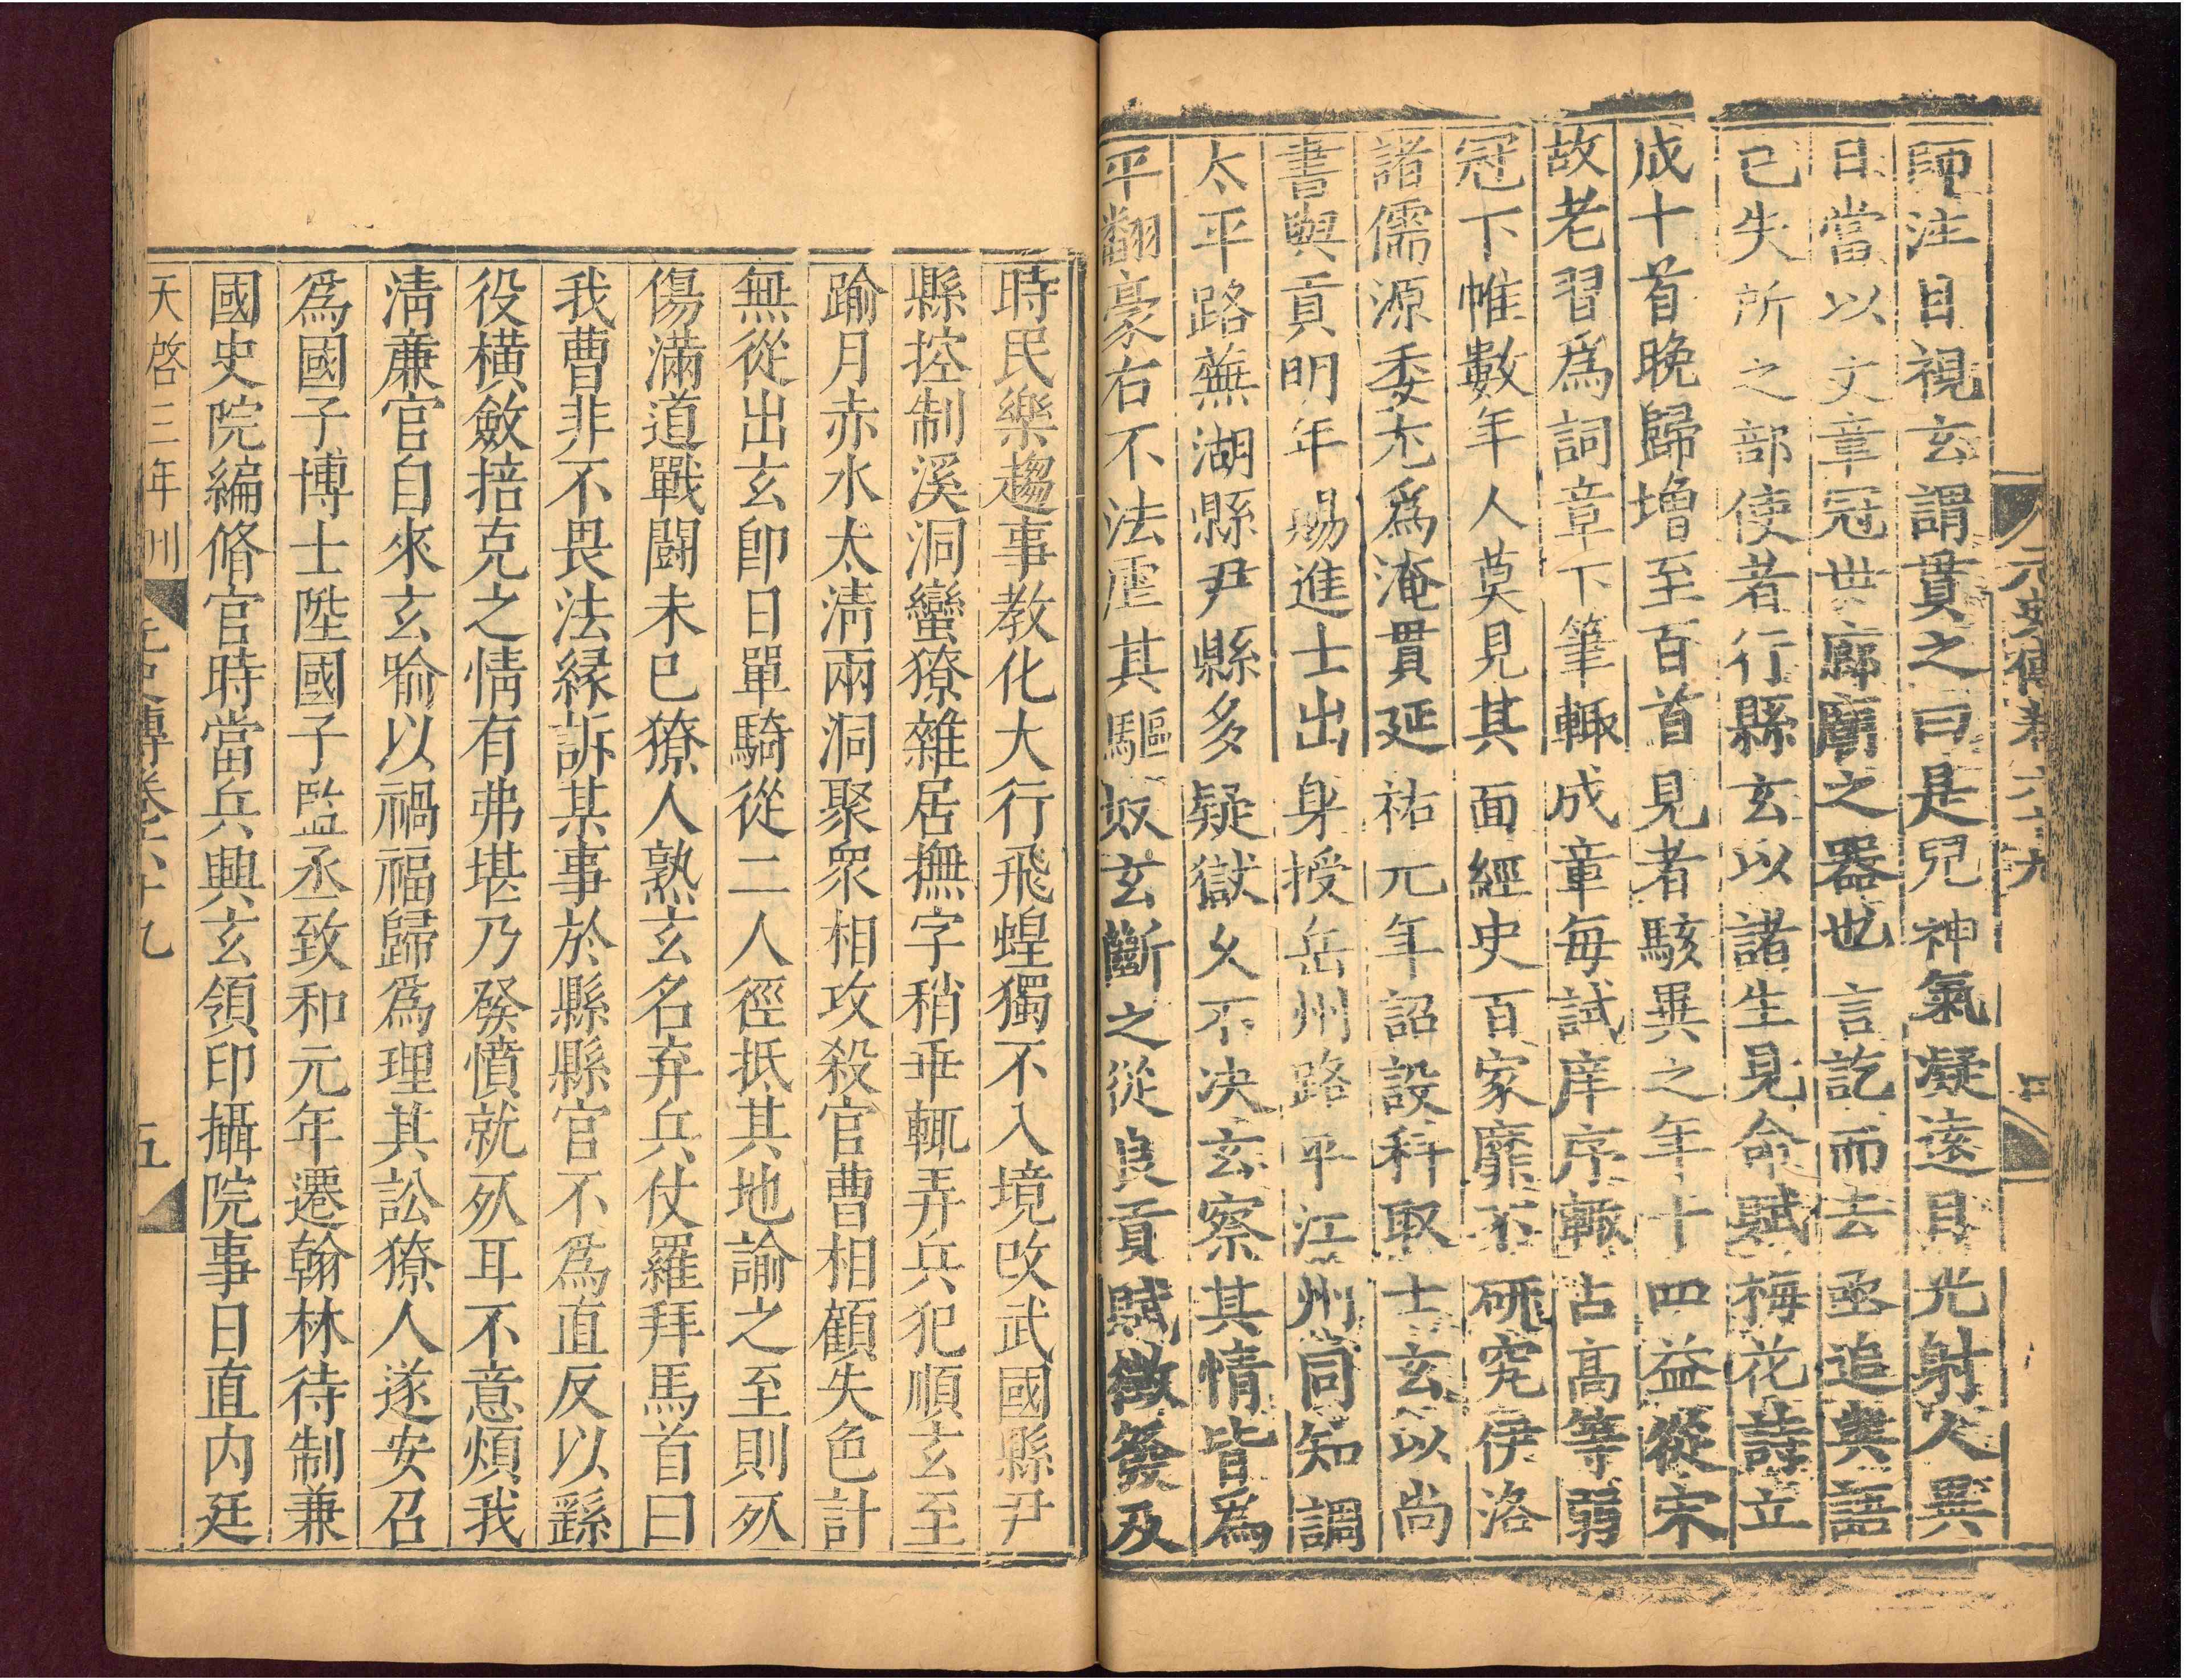 元史傳卷六十九
四
師注目視玄謂貫之曰是兒神氣凝遠目光射人異
日當以文章冠世廊廟之器也言訖而去亟追與語
已失所之部使者行縣玄以諸生見命賦梅花詩立
成十首晚歸增至百首見者駭異之年十四益從宋
故老習爲詞章下筆輒成章每試庠序輒占高等弱
冠下帷數年人莫見其面經史百家靡不研究伊洛
諸儒源委尤爲淹貫延祐元年詔設科取士玄以尚
書與貢明年賜進士出身授岳州路平江州同知調
太平路蕪湖縣尹縣多疑獄久不决玄察其情皆爲
平翻豪右不法虐其驅奴玄斷之從良貢賦徵發及
時民樂趨事教化大行飛蝗獨不入境改武國縣尹
縣控制溪洞蠻獠雜居撫字稍乖輒弄兵犯順玄至
踰月赤水太淸兩洞聚衆相攻殺官曹相顧失色計
無從出玄卽日單騎從二人徑抵其地諭之至則死
傷滿道戰鬬未已獠人熟玄名弃兵仗羅拜馬首曰
我曹非不畏法緣訴某事於縣縣官不爲直反以繇
役橫斂掊克之情有弗堪乃發憤就死耳不意煩我
淸廉官自來玄喻以禍福歸爲理其訟獠人遂安召
爲國子博士陞國子監丞致和元年遷翰林待制兼
國史院編脩官時當兵興玄領印攝院事日直内廷
天啓三年刊
元史傳卷六十九
五